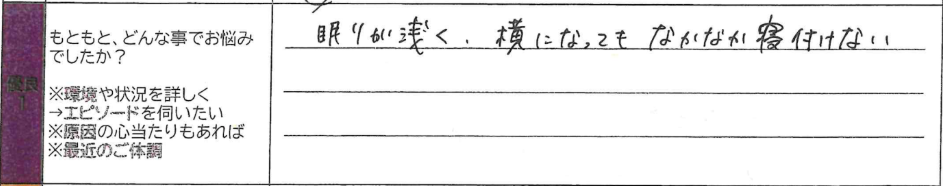 優良
1
もともと、どんな事でお悩み
でしたか？
※環境や状況を詳しく
→エピソードを伺いたい
※原因の心当たりもあれば
※最近のご体調
眠りが浅く、横になってもなかなか寝付けない